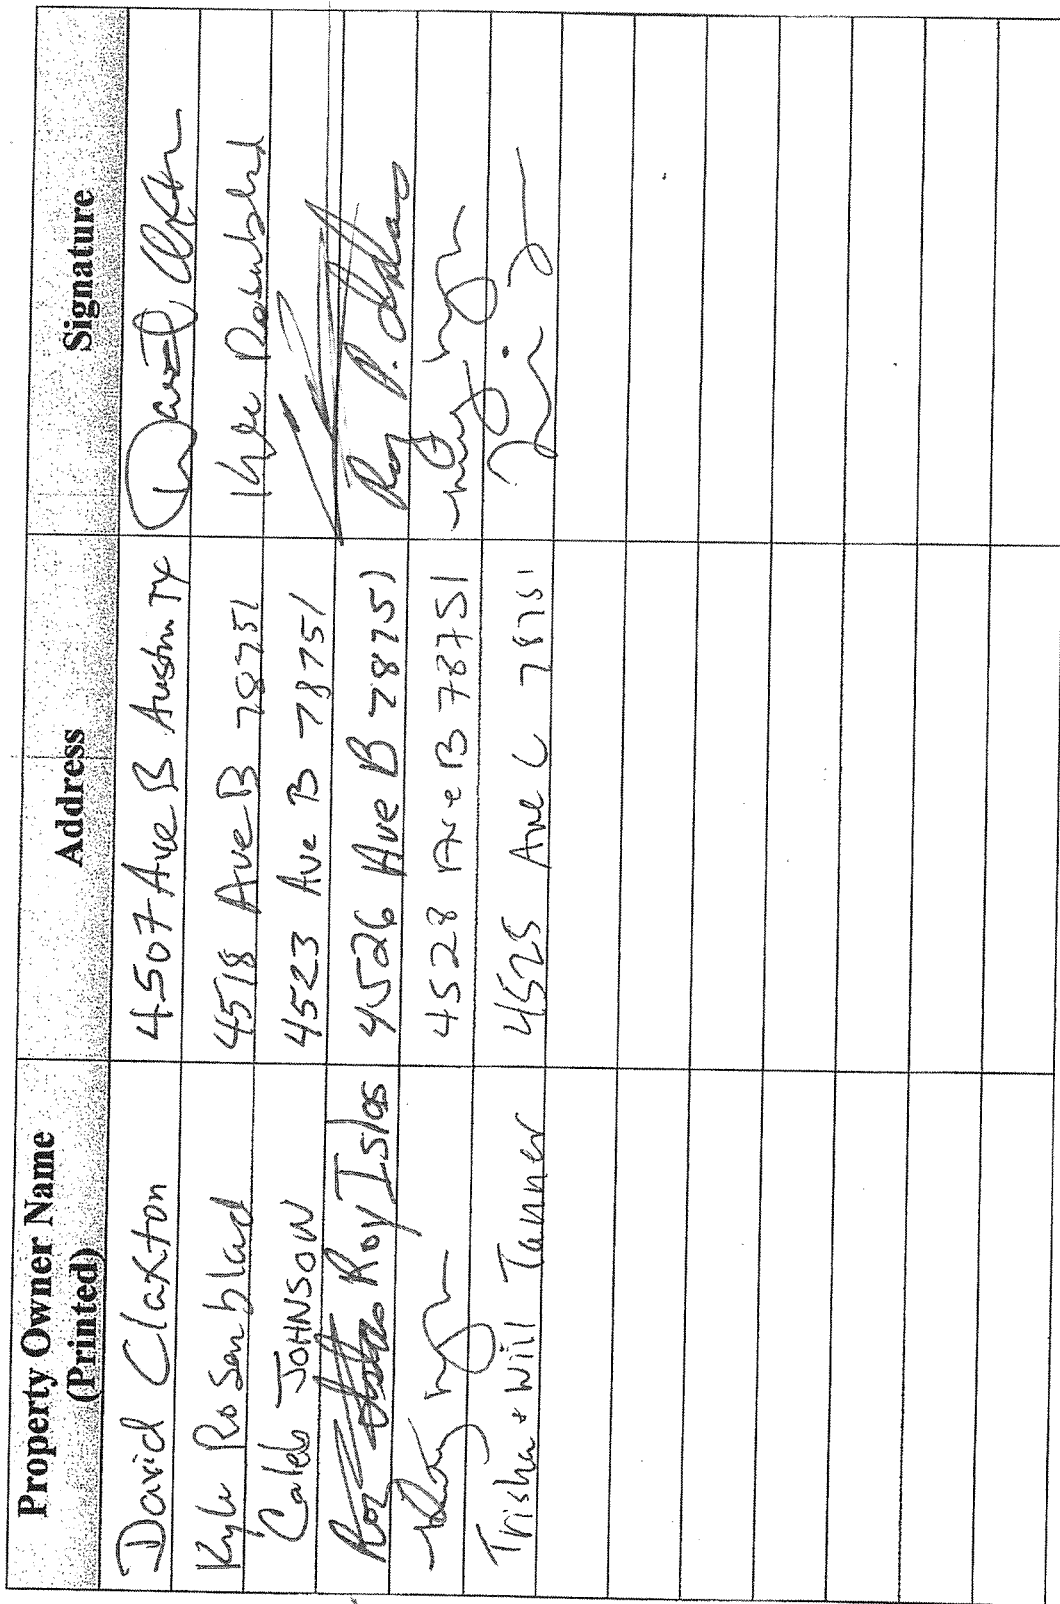 Property Owner Name Address Signature
(Printed)
David Claxton 4507 Ave B Austin TX David Claxton
Kyle Rosenblad 4518 Ave B 78751 Kyle Rosenblad
Caleb JOHNSON 4523 Ave B 78751
Roy Islas 4526 Ave B 78751 Roy P. Islas
4528 Ave B 78751
Trisha + Will Tanner 4525 Ave C 78751